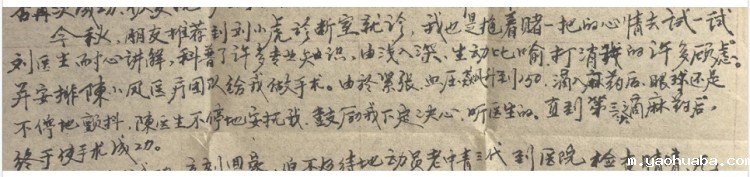 今秋，朋友推荐到刘小虎诊断室就诊，我也是抱着赌一把的心情去试一试
刘医生耐心讲解，科普了许多专业知识，由浅入深、生动比喻，打消我的许多顾虑。
并安排陳小凤医疗团队给我做手术。由於紧张，血压飙升到150，滴入麻药后，眼球还是
不停地颤抖，陳医生不停地安抚我，鼓励我下定决心，听医生的。直到第三滴麻药后，
终于使手术成功。
迫不及待地动员老中青三代到医院检查
m.yaohuaba.com